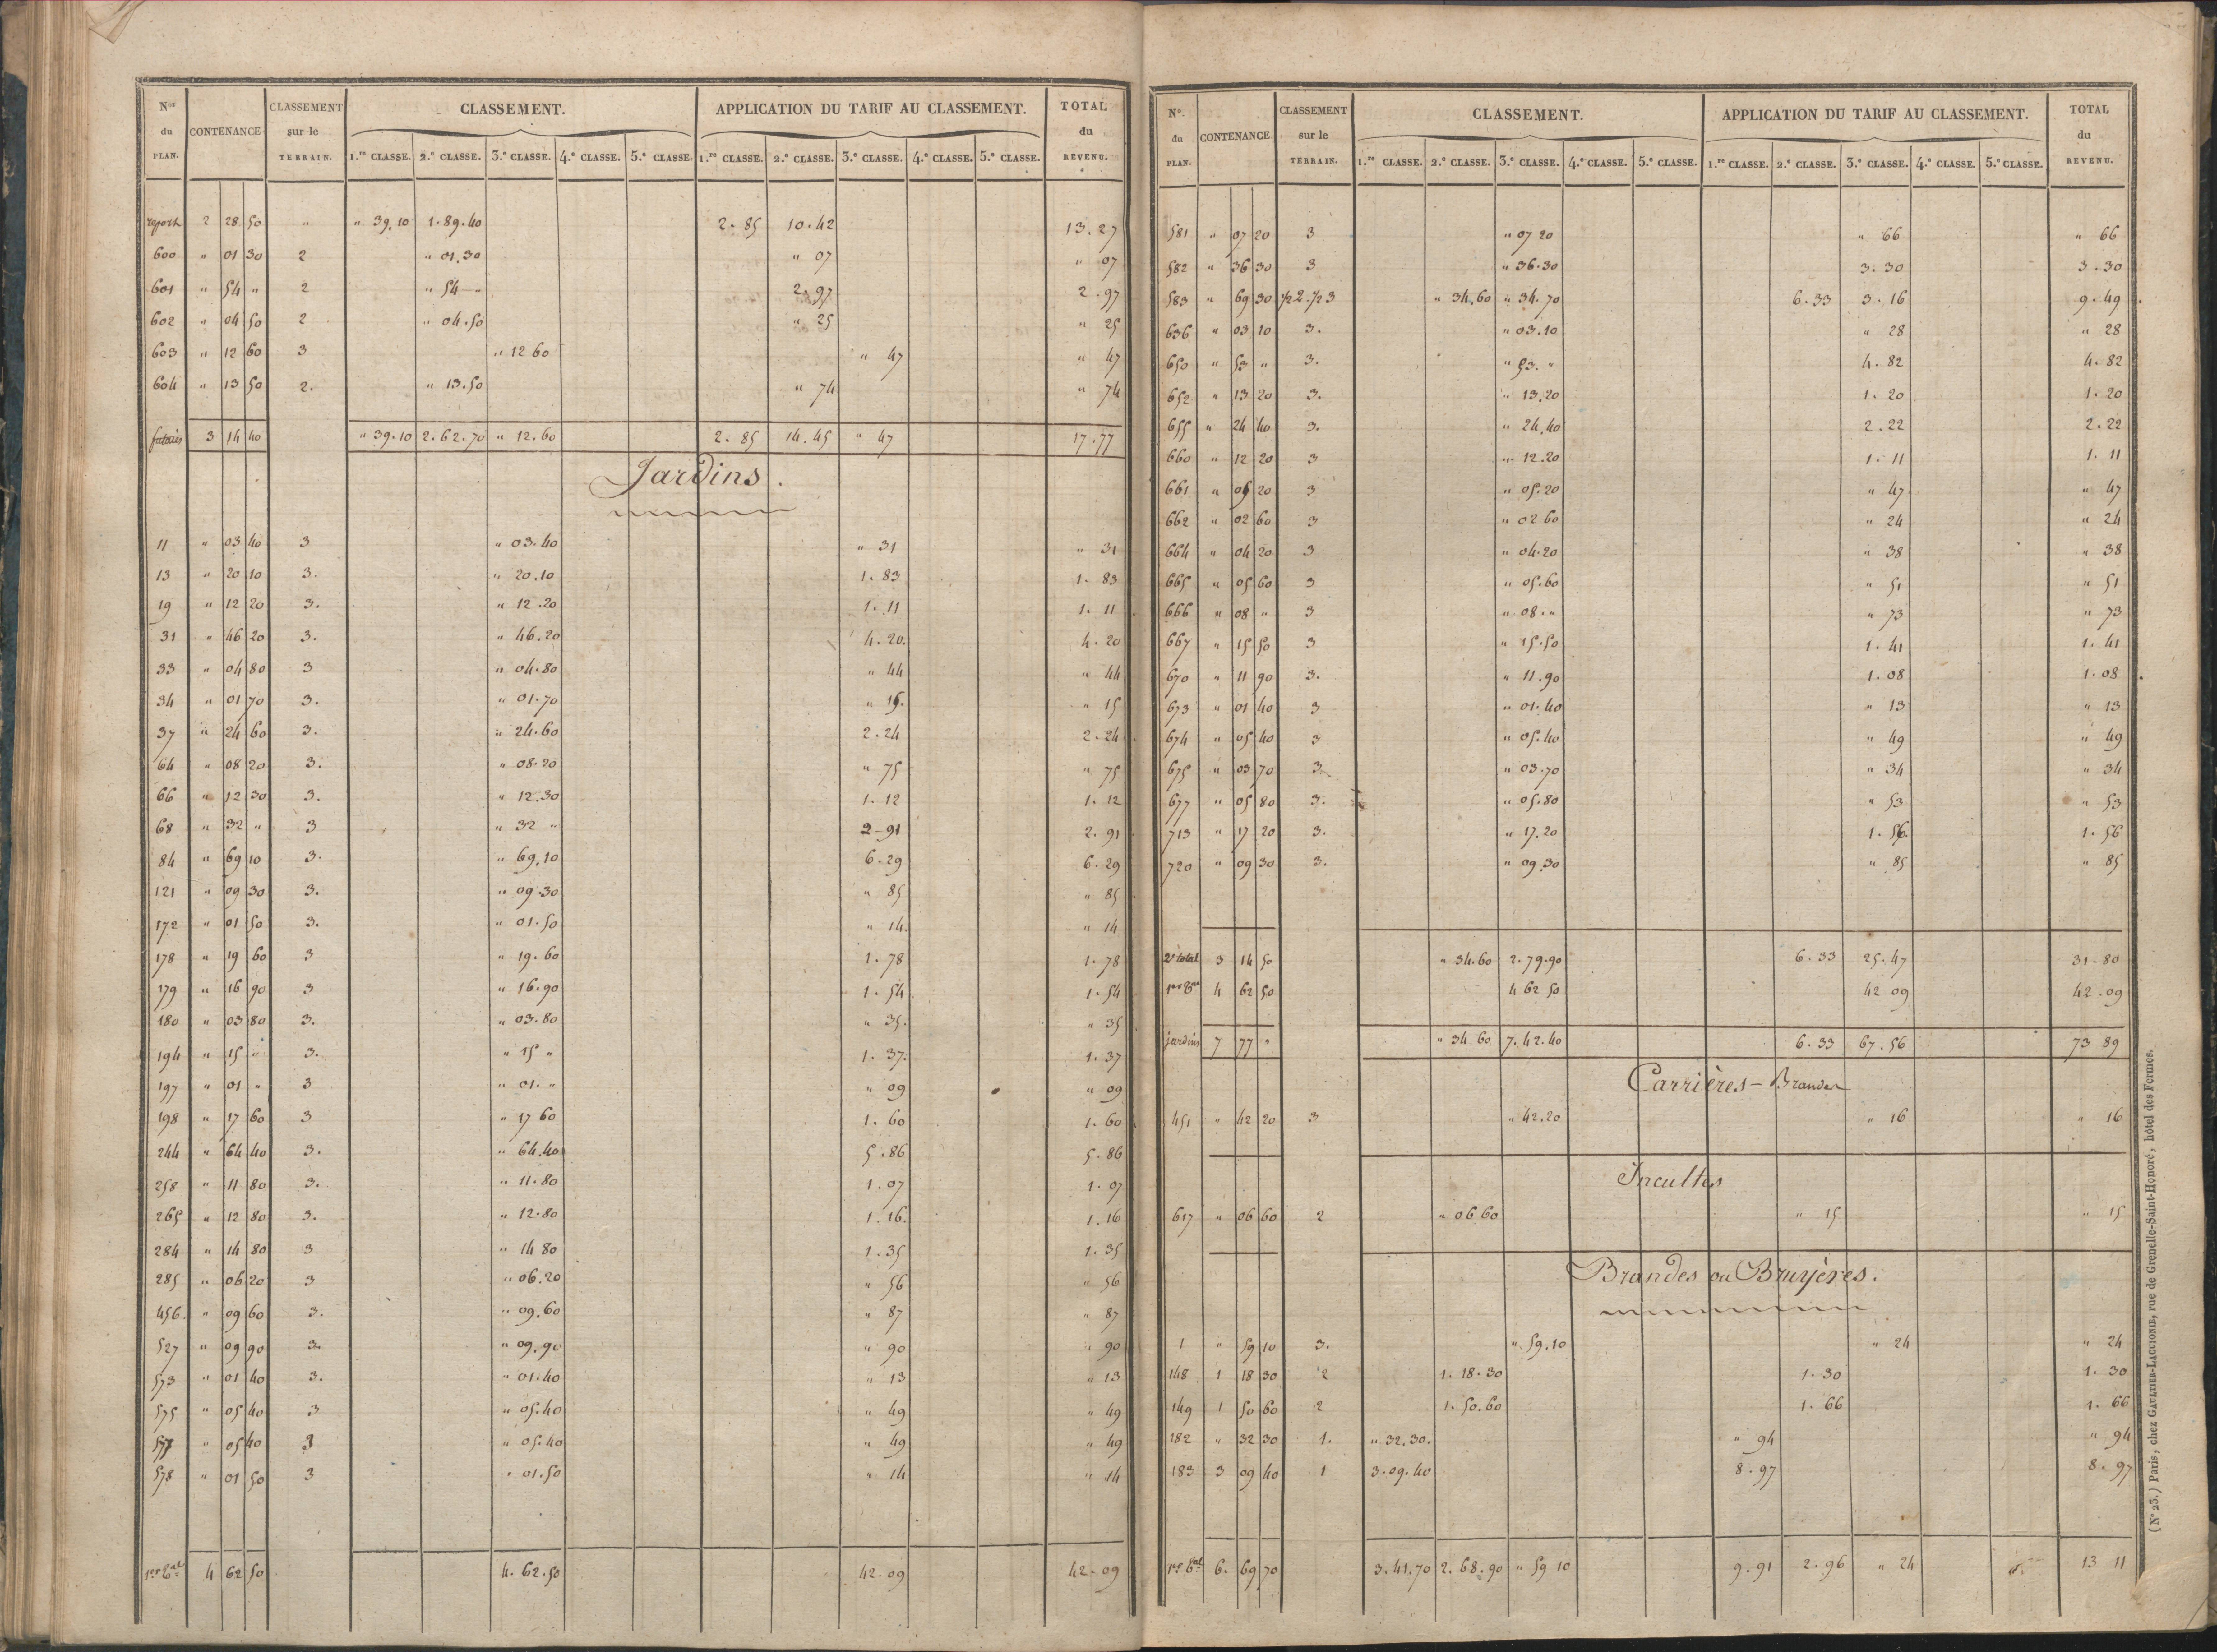 Nos du PLAN. CONTENANCE CLASSEMENT sur le TERRAIN. CLASSEMENT. APPLICATION DU TARIF AU CLASSEMENT. TOTAL du REVENU.
1.re CLASSE. 2.e CLASSE. 3.e CLASSE. 4.e CLASSE. 5.e CLASSE. 1.re CLASSE. 2.e CLASSE. 3.e CLASSE. 4.e CLASSE. 5.e CLASSE.
report 2 28 50 " " 39.10 1.89.40 2.85 10.42 13.27
600 " 01 30 2 " 01.30 " 07 " 07
601 " 54 " 2 " 54 - " 2.97 2.97
602 " 04 50 2 " 04.50 " 25 " 25
603 " 12 60 3 " 12 60 " 47 " 47
604 " 13 50 2. " 13.50 " 74 " 74
3 14 40 " 39.10 2.62.70 " 12.60 2.85 14.45 " 47 17.77
Jardins.
11 " 03 40 3 " 03.40 " 31 " 31
13 " 20 10 3. " 20.10 1.83 1.83
19 " 12 20 3. " 12.20 1.11 1.11
31 " 46 20 3. " 46.20 4.20. 4.20
33 " 04 80 3 " 04.80 " 44 " 44
34 " 01 70 3. " 01.70 " 15. " 15
37 " 24 60 3. " 24.60 2.24 2.24
64 " 08 20 3. " 08.20 " 75 " 75
66 " 12 30 3. " 12.30 1.12 1.12
68 " 32 " 3 " 32 " 2-91 2.91
84 " 69 10 3. " 69.10 6.29 6.29
121 " 09 30 3. " 09.30 " 85 " 85
172 " 01 50 3. " 01.50 " 14. " 14
178 " 19 60 3 " 19.60 1.78 1.78
179 " 16 90 3 " 16.90 1.54 1.54
180 " 03 80 3. " 03.80 " 35. " 35
194 " 15 " 3. " 15 " 1.37. 1.37
197 " 01 " 3 " 01. " " 09 " 09
198 " 17 60 3 " 17 60 1.60 1.60
244 " 64 40 3. " 64.40 5.86 5.86
258 " 11 80 3. " 11.80 1.07 1.07
265 " 12 80 3. " 12.80 1.16. 1.16
284 " 14 80 3 " 14 80 1.35 1.35
285 " 06 20 3 " 06.20 " 56 " 56
456. " 09 60 3. " 09.60 " 87 " 87
527 " 09 90 3. " 09.90 " 90 " 90
573 " 01 40 3. " 01.40 " 13 " 13
575 " 05 40 3 " 05.40 " 49 " 49
577 " 05 40 3 " 05.40 " 49 " 49
578 " 01 50 3 " 01.50 " 14 " 14
1er tal 4 62 50 4.62.50 42.09 42-09
No. du PLAN. CONTENANCE. CLASSEMENT sur le TERRAIN. CLASSEMENT. APPLICATION DU TARIF AU CLASSEMENT. TOTAL du REVENU.
1.re CLASSE. 2.e CLASSE. 3.e CLASSE. 4.e CLASSE. 5.e CLASSE. 1.re CLASSE. 2.e CLASSE. 3.e CLASSE. 4.e CLASSE. 5.e CLASSE.
581 " 07 20 3 " 07 20 " 66 " 66
582 " 36 30 3 " 36.30 3.30 3.30
583 " 69 30 1/2 2.1/2 3 " 34.60 " 34.70 6.33 3.16 9.49
636 " 03 10 3. " 03.10 " 28 " 28
650 " 53 " 3. " 53. " 4.82 4.82
652 " 13 20 3. " 13.20 1.20 1.20
655 " 24 40 3. " 24.40 2.22 2.22
660 " 12 20 3 " 12.20 1.11 1.11
661 " 05 20 3 " 05.20 " 47 " 47
662 " 02 60 3 " 02 60 " 24 " 24
664 " 04 20 3 " 04.20 " 38 " 38
665 " 05 60 3 " 05.60 " 51 " 51
666 " 08 " 3 " 08. " " 73 " 73
667 " 15 50 3 " 15.50 1.41 1.41
670 " 11 90 3. " 11.90 1.08 1.08
673 " 01 40 3 " 01.40 " 13 " 13
674 " 05 40 3 " 05.40 " 49 " 49
675 " 03 70 3. " 03.70 " 34 " 34
677 " 05 80 3. " 05.80 " 53 " 53
713 " 17 20 3. " 17.20 1.56. 1.56
720 " 09 30 3. " 09.30 " 85 " 85
2e total 3 14 50 " 34.60 2.79.90 6.33 25.47 31-80
1er tal 4 62 50 4 62 50 42 09 42.09
jardins 7 77 " " 34 60 7.42.40 6.33 67.56 73 89
Carrières - Brandes
451 " 42 20 3 " 42.20 " 16 " 16
Incultes
617 " 06 60 2 " 06 60 " 15 " 15
Brandes ou Bruyères.
1 " 59 10 3. " 59.10 " 24 " 24
148 1 18 30 2 1.18.30 1.30 1.30
149 1 50 60 2 1.50.60 1.66 1.66
182 " 32 30 1. " 32.30. " 94 " 94
183 3 09 40 1 3.09.40 8.97 8.97
1er tal 6. 69 70 3.41.70 2.68.90 " 59 10 9.91 2.96 " 24 13 11
(No 23.) Paris, chez GAULTIER-LAGUIONIE, rue de Grenelle-Saint-Honoré, hôtel des Fermes.